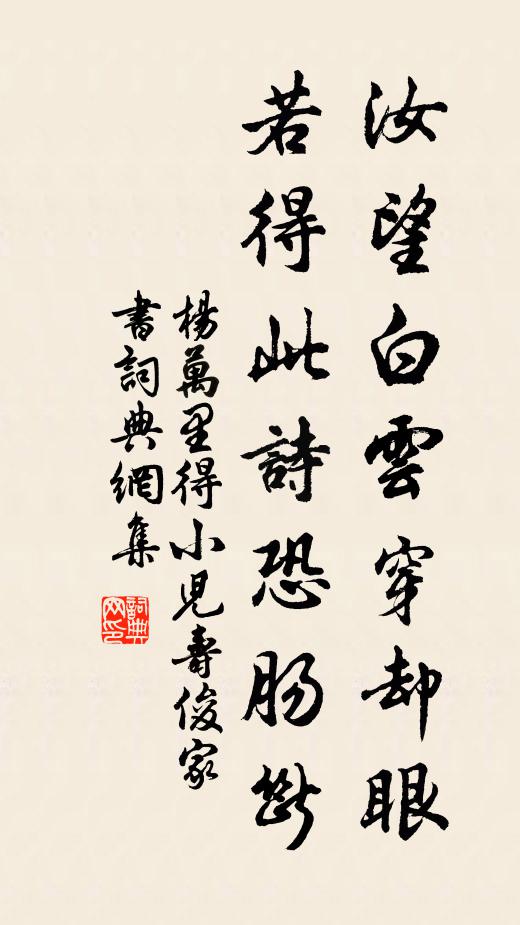 汝望白雲穿却眼
若得此詩恐腸斷
楊萬里得小兒壽俊家
書詞典網集
詞典
网印